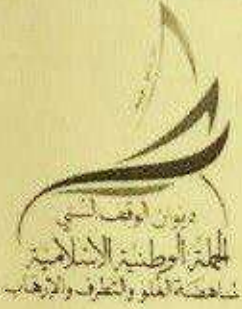 ديوان الوقف السني
الحملة الوطنية الاسلامية
لمناهضة الغلو والتطرف والارهاب